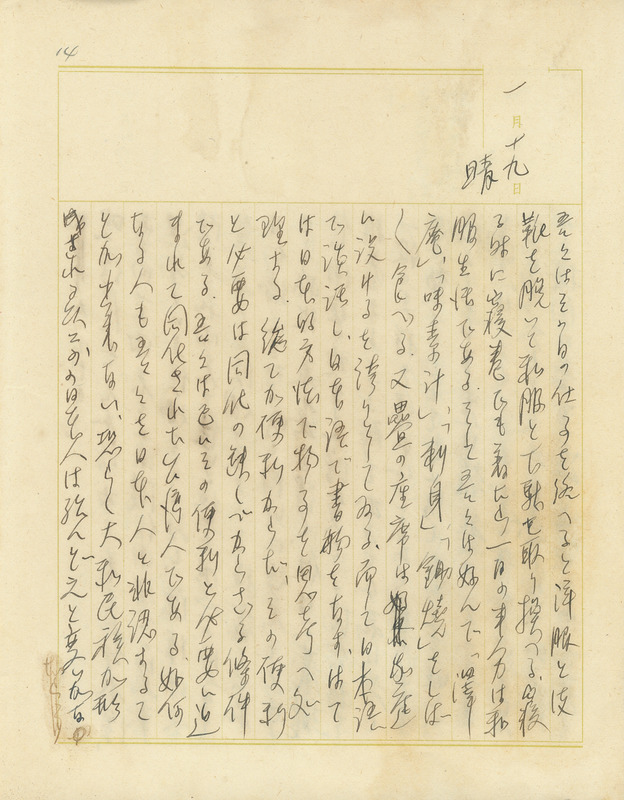 14
一月十九日
晴
吾々はその日の仕事を終へると洋服と皮
靴を脱いで和服と下駄を取り換へる。寝
る時に寝巻でも着たら一日の半分は和
服生活である。そして吾々は好んで「澤
庵」、「味素汁」、「刺身」、「鋤燒」をしば
く食べる。又疊の座席は家庭
に設けるを誇りとしてゐる。而して日本語
で談話し、日本語で書物をなす。はて
は日本的方法で物事を思考へ処
理する。總てが便利からだ、その便利
と必要は同化の 條件
である。吾々は互にその便利と必要に迫
まれて同化された台灣人である。如何
なる人も吾々を日本人と非認するこ
とが出来ない。恐らく大和民族が形
成される以前の日本人は殆んど元と